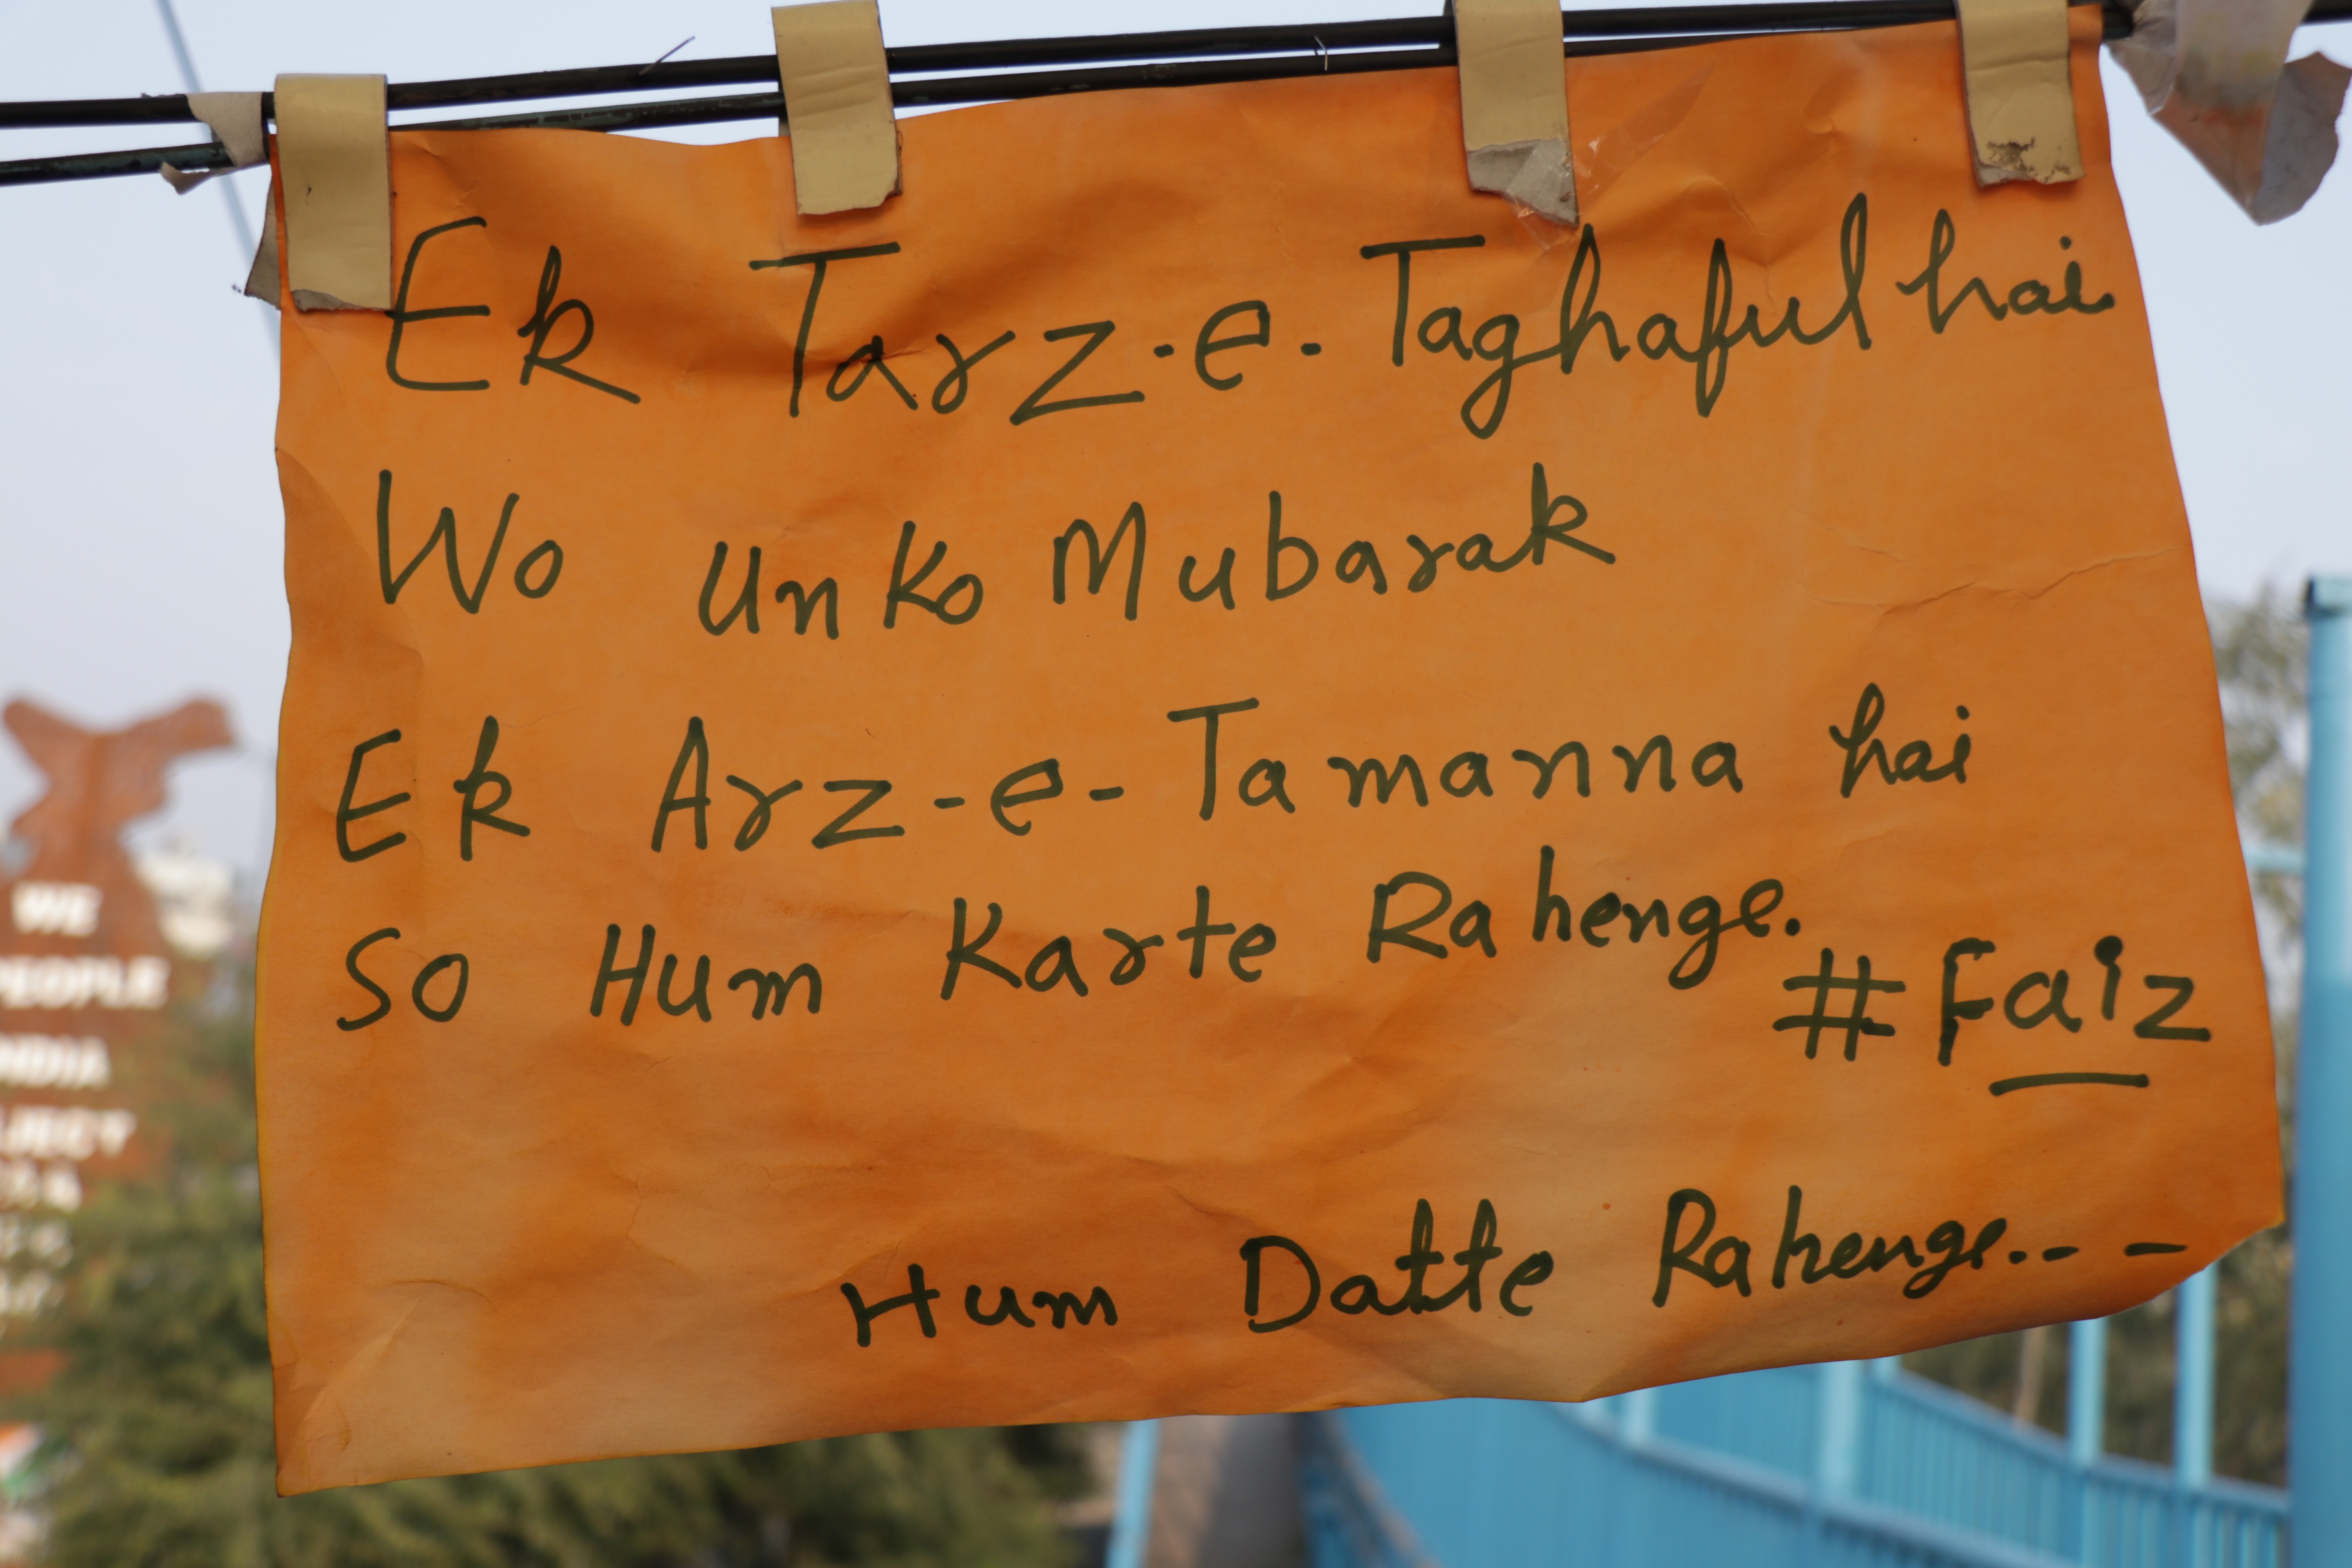 Ek Tarz-e-Taghaful hai
Wo Unko Mubarak
Ek Arz-e-Tamanna hai
So Hum Karte Rahenge.
#Faiz
Hum Datte Rahenge..--
WE
PEOPLE